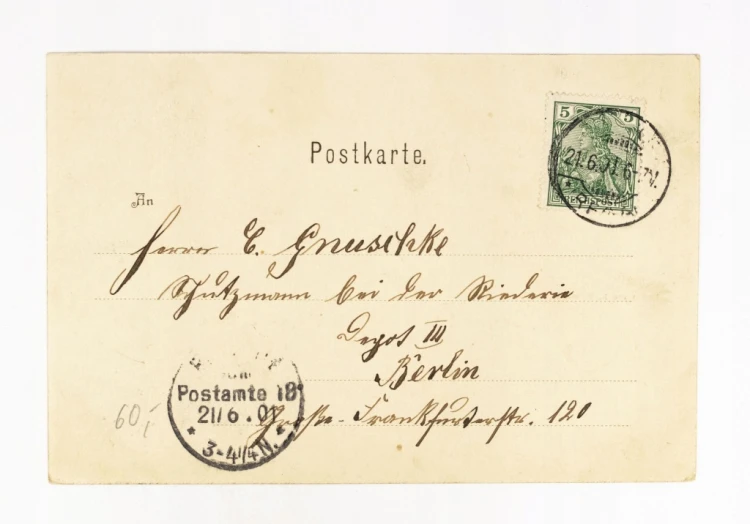 5 5
Postkarte.
21.6.01.6-7V.
An
Herrn E. Gnuschke
Schutzmann bei der Riederie
Depot III
Berlin
Postamte 18*
21/6.01
Große-Frankfurterstr. 120
* 3-4¼N. *
60,-